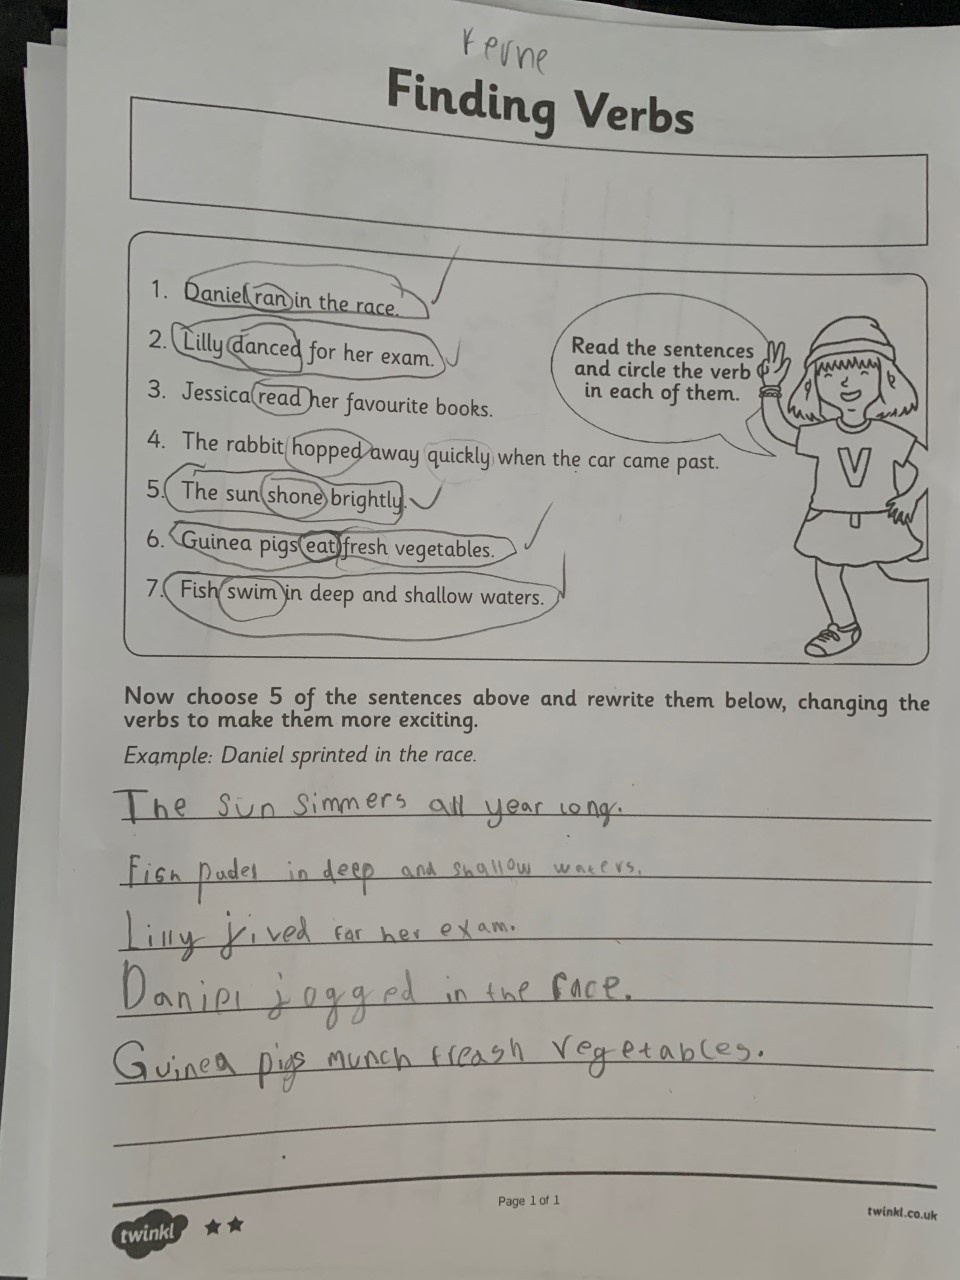 Kerne
Finding Verbs
1. Daniel ran in the race.
2. Lilly danced for her exam.
3. Jessica read her favourite books.
4. The rabbit hopped away quickly when the car came past.
5. The sun shone brightly.
6. Guinea pigs eat fresh vegetables.
7. Fish swim in deep and shallow waters.
Read the sentences
and circle the verb
in each of them.
V
Now choose 5 of the sentences above and rewrite them below, changing the
verbs to make them more exciting.
Example: Daniel sprinted in the race.
The sun simmers all year long.
Fish padel in deep and shallow waters.
Lilly jived for her exam.
Daniel jogged in the race.
Guinea pigs munch freash vegetables.
Page 1 of 1
twinkl
twinkl.co.uk